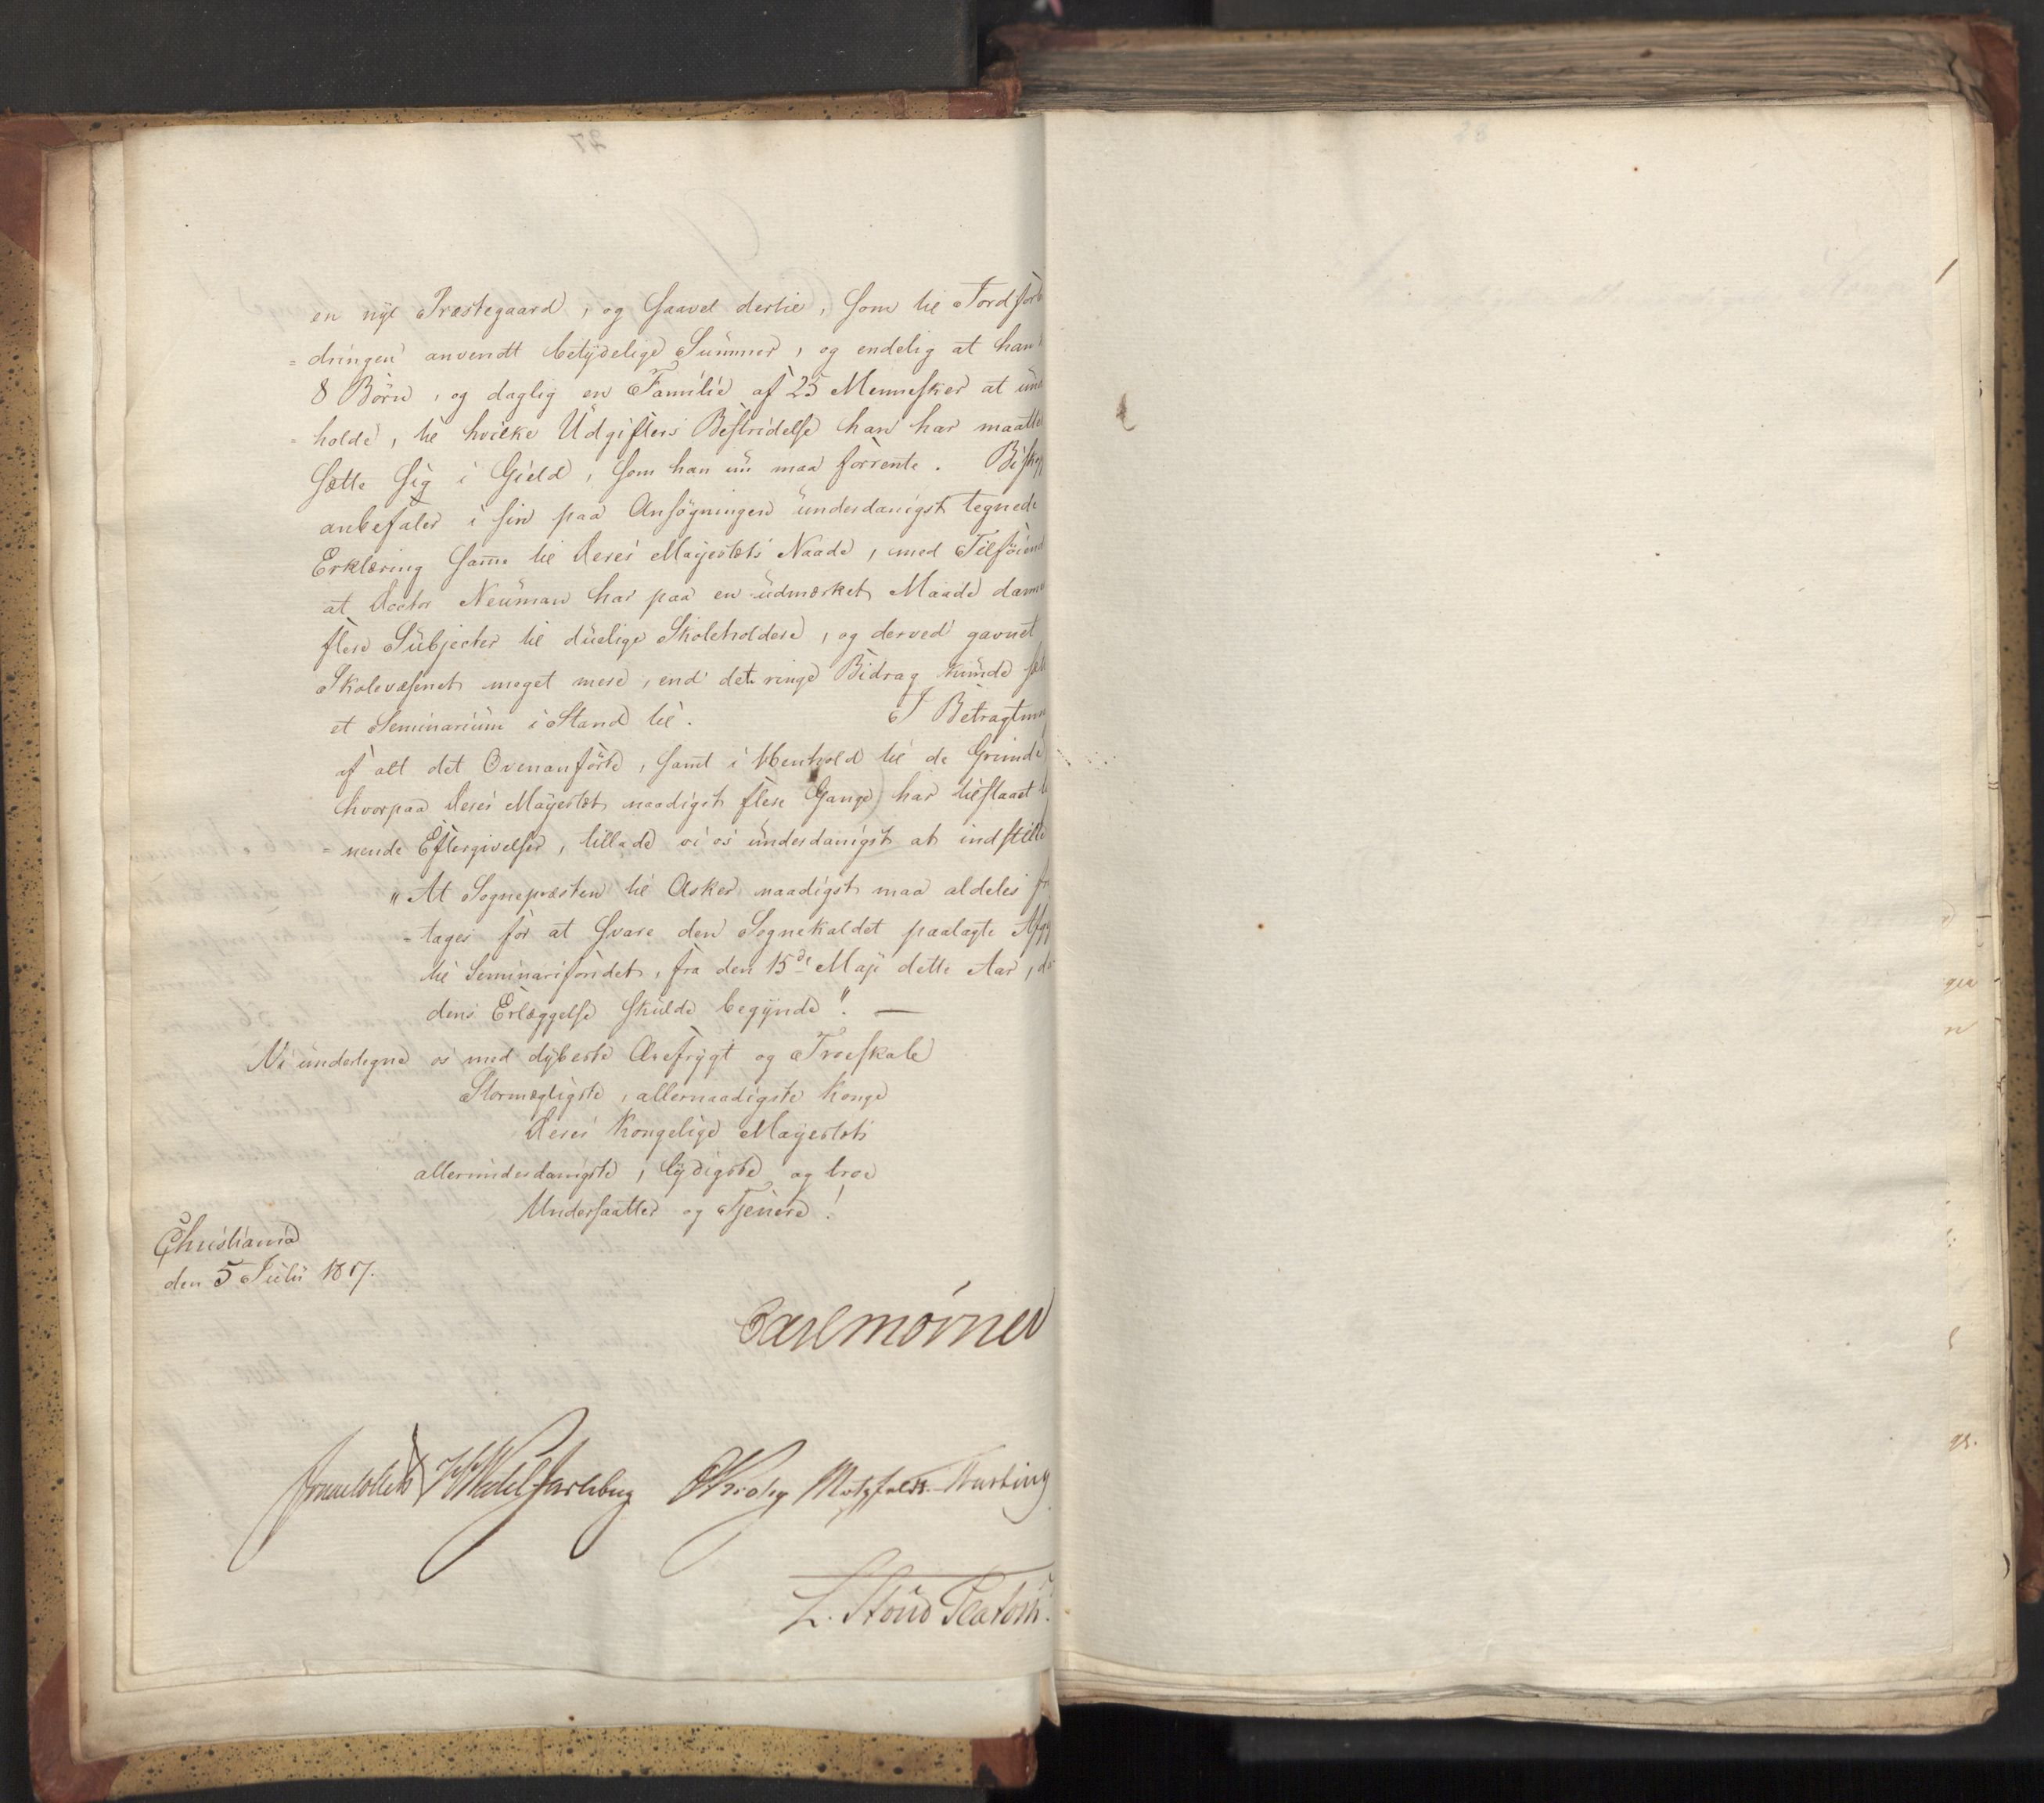 en nye Præstegaard, og saavel dertil, som til Jordforbe
= dringen anvendt betydelige Summer, og endelig at han
8 Börn, og daglig en Familie af 25 Mennesker at und
= holde, til hvilke Udgifters Bestridelse han har maattet
sætte sig i Gield, som han nu maa forrente. Biskop
anbefaler i sin paa Ansögningen underdanigst tegnede
Erklæring samme til Deres Majestæts Naade, med Tilföiend
at Doctor Neuman har paa en udmærket Maade danne
flere Subjecter til duelige Skoleholdere, og derved gavnet
Skolevæsenet meget mere, end det ringe Bidrag kunde sæt
et Seminarium i Stand til. I Betragtnin
af alt det Ovenanförte, samt i Henhold til de Grunde
hvorpaa Deres Majestæt naadigst flere Gange har tilstaaet l
= nende Eftergivelser, tillade vi os underdanigst at indstille
"At Sognepræsten til Asker naadigst maa aldeles fri
= tages for at svare den Sognekaldet paalagte Afg
til Seminarifondet, fra den 15de Maji dette Aar, da
dens Erlæggelse skulde begynde". —
Vi undertegne os med dybeste Ærefrygt og Troeskab
Stormægtigste, allernaadigste Konge
Deres Kongelige Majestæts
allerunderdanigste, lydigste og troe
Undersaatter og Tjenere!
Christiania
den 5 Julii 1817.
Carl Mörner
Jonas Collett HWedel Jarlsberg CKrohg Motzfeldt Hasting
L. Stoud Platou